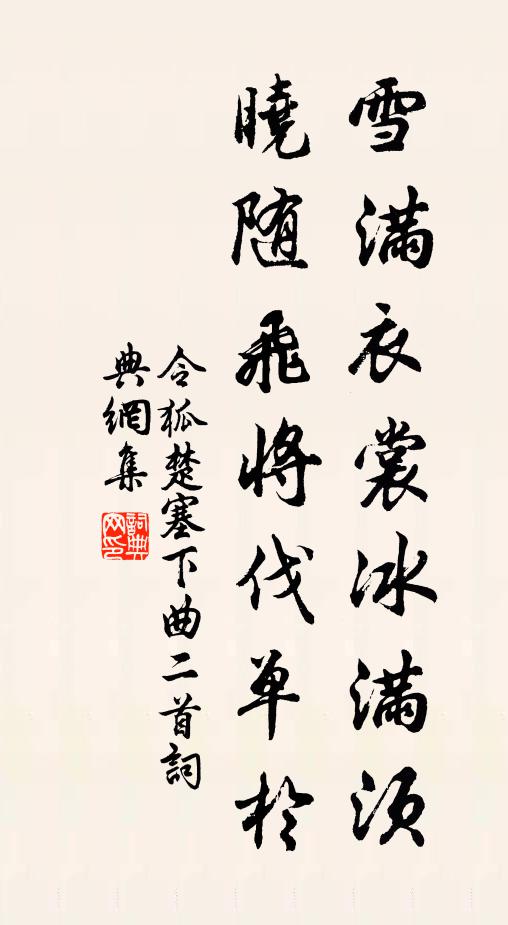 雪满衣裳冰满须
晓随飞将伐单于
令狐楚塞下曲二首词
典網集
詞典
网印